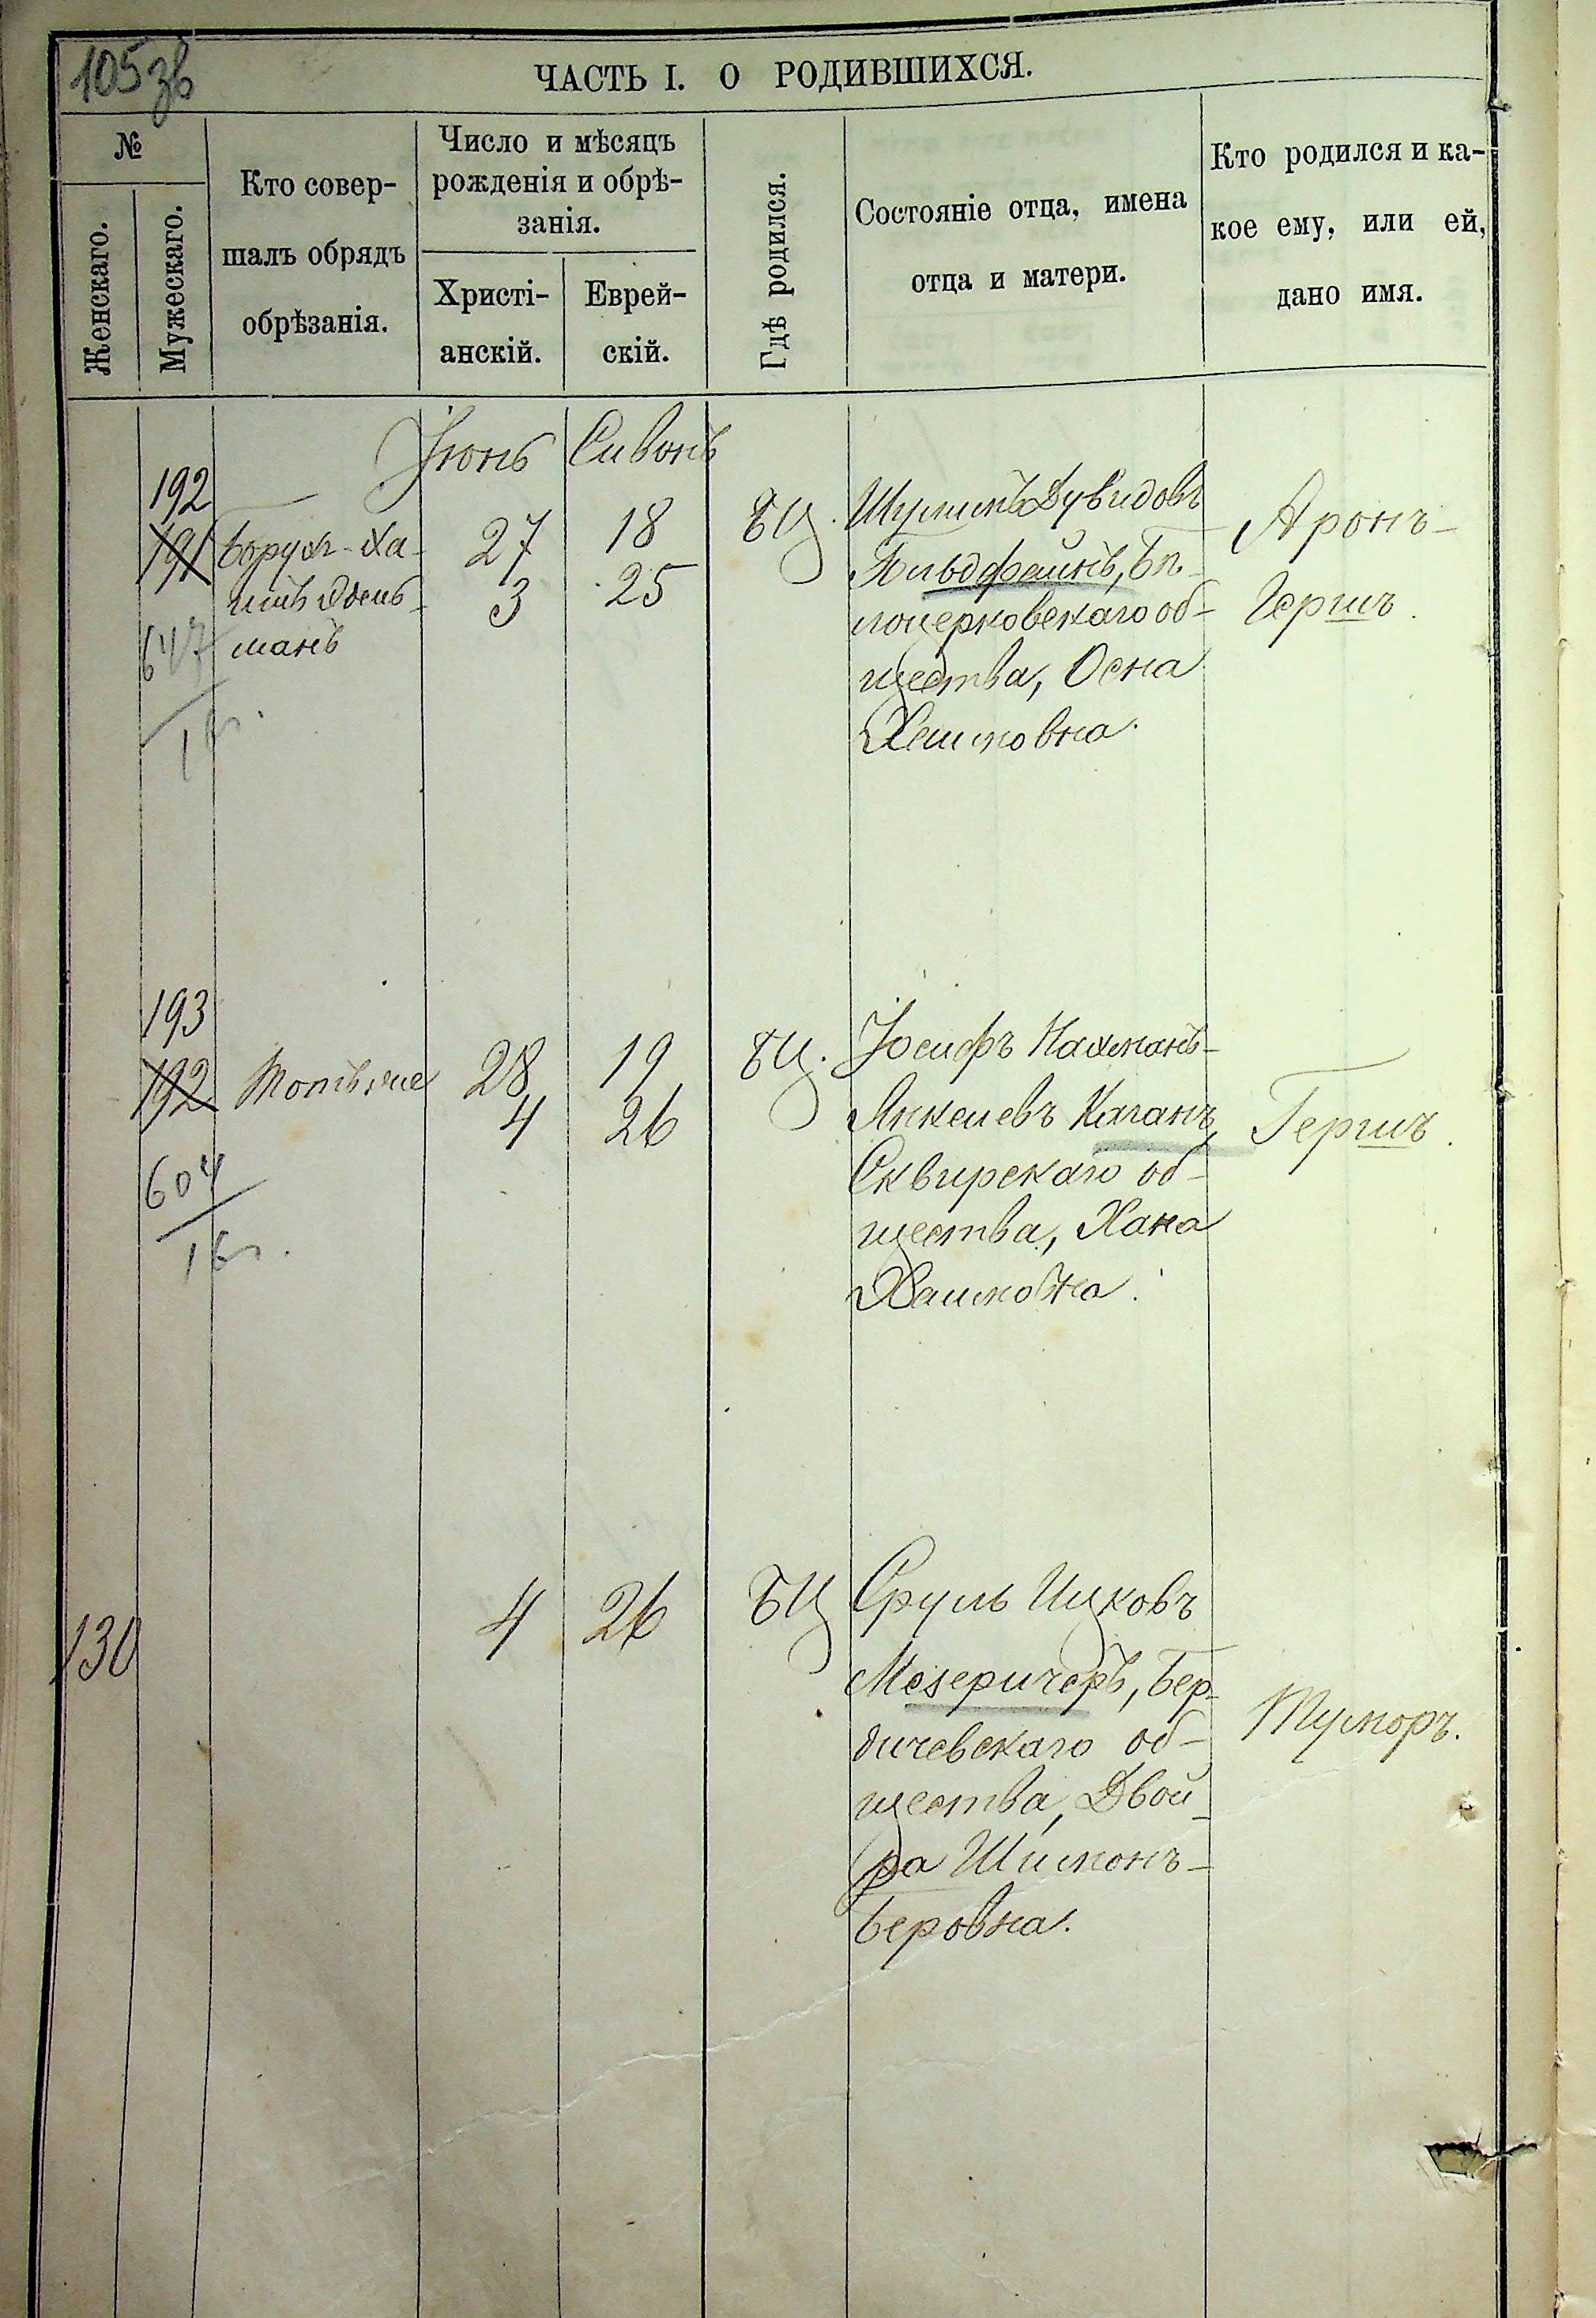 105 зв
ЧАСТЬ I. О РОДИВШИХСЯ.
№
Женскаго.
Мужескаго.
Кто совер-
шалъ обрядъ
обрѣзанія.
Число и мѣсяцъ
рожденія и обрѣ-
занія.
Христі-
анскій.
Еврей-
скій.
Гдѣ родился.
Состояніе отца, имена
отца и матери.
Кто родился и ка-
кое ему, или ей,
дано имя.
Іюнь Сивонъ
192
191
Борухъ-Ха-
имъ Эдель-
манъ
647
27 18
3 25
БЦ.
Шулимъ Дувидовъ
Гольдфайнъ, Бѣ-
лоцерковскаго об-
щества, Осна
Хаимовна.
Аронъ-
Гершъ.
193
192
Тотъ же
604
28 19
4 26
БЦ.
Іосифъ Нахманъ-
Янкелевъ Каганъ,
Сквирскаго об-
щества, Хана
Хаимовна.
Гершъ.
130
4 26
БЦ
Сруль Ицковъ
Мезеричеръ, Бер-
дичевскаго об-
щества, Двой-
ра Шимонъ-
Беровна.